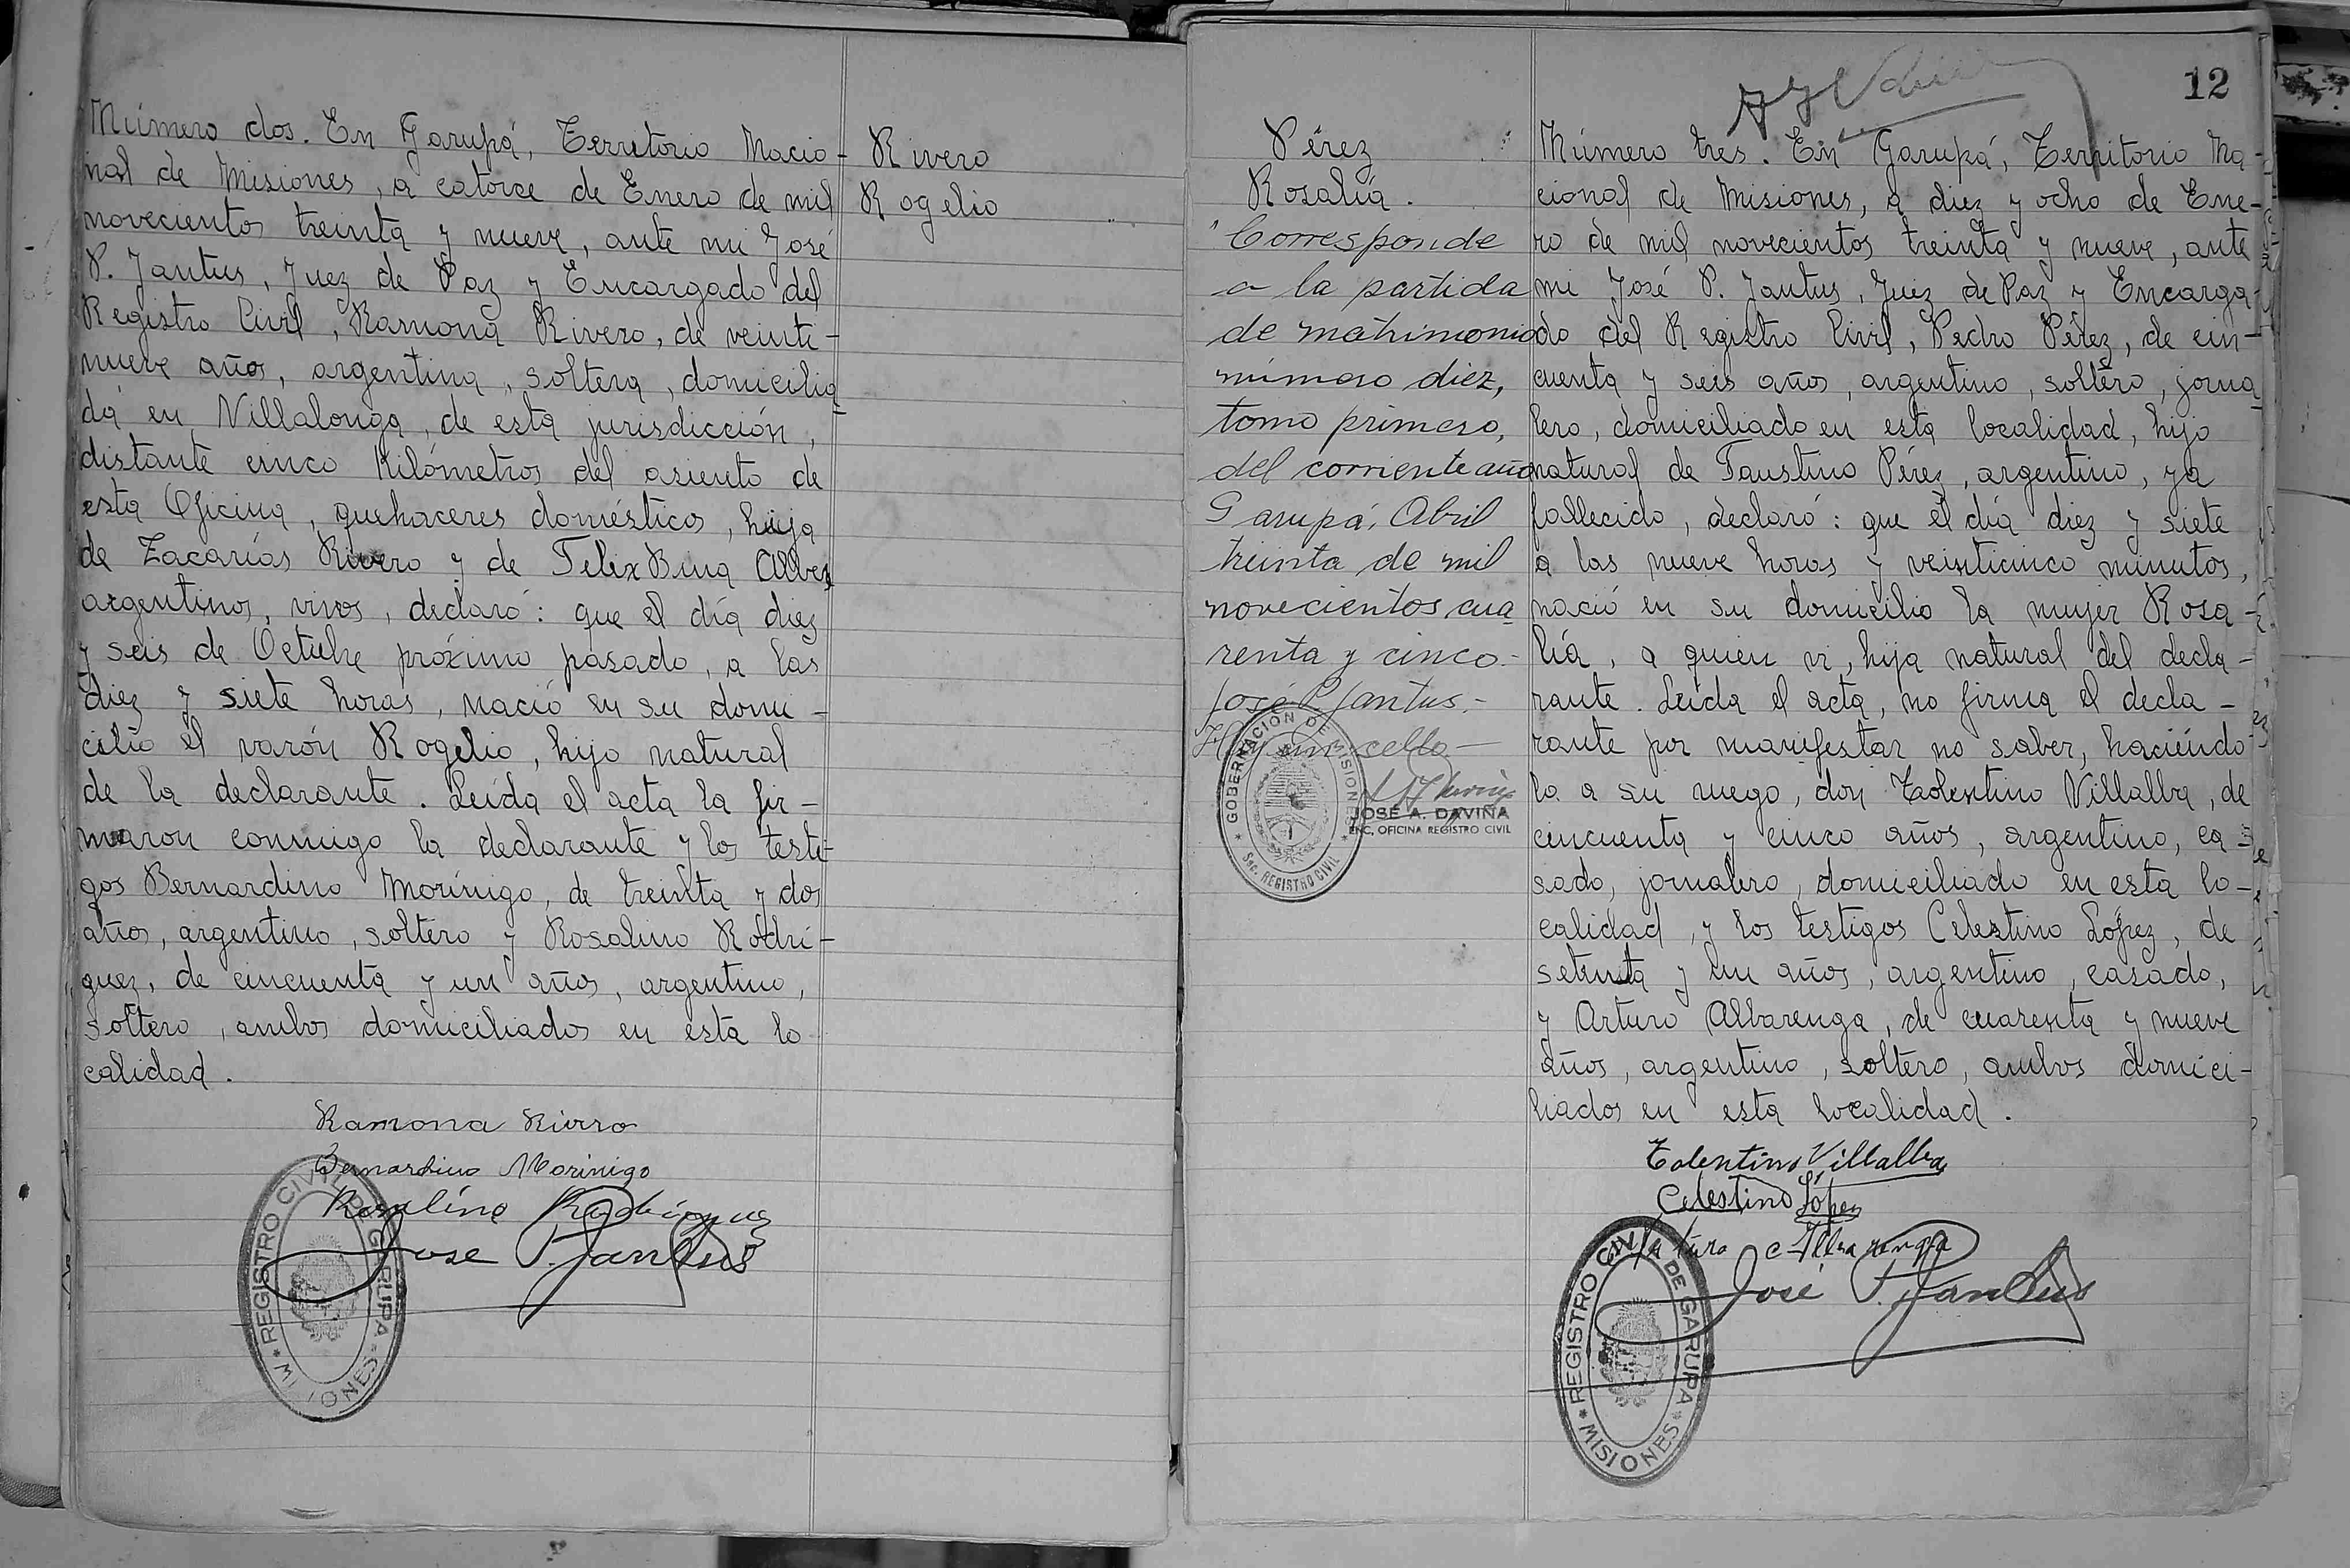 Número dos. En Garupá, Territorio Nacio-
nal de Misiones, a catorce de Enero de mil
novecientos treinta y nueve, ante mi José
P. Jantus, Juez de Paz y Encargado del
Registro Civil, Ramona Rivero, de veinti-
nueve años, argentina, soltera, domicilia-
da en Villalonga, de esta jurisdicción,
distante cinco kilómetros del asiento de
esta Oficina, quehaceres domésticos, hija
de Zacarías Rivero y de Felix Bina Alvez
argentinos, vivos, declaró: que el día diez
y seis de Octubre próximo pasado, a las
diez y siete horas, nació en su domi-
cilio el varón Rogelio, hijo natural
de la declarante. Leída el acta la fir-
maron conmigo la declarante y los testi-
gos Bernardino Morínigo, de treinta y dos
años, argentino, soltero y Rosalino Rodrí-
guez, de cincuenta y un años, argentino,
soltero, ambos domiciliados en esta lo
calidad.
Ramona Rivero
Bernardino Morinigo
Rosalino Rodriguez
José P. Jantus
REGISTRO CIVIL DE GARUPA
MISIONES
Rivero
Rogelio
12
Pérez
Rosalía.
Corresponde
a la partida
de matrimonio
número diez,
tomo primero,
del corriente año
Garupá, Abril
treinta de mil
novecientos cua
renta y cinco.-
José P. Jantus.-
GOBERNACION DE MISIONES
Sec. REGISTRO CIVIL
JOSÉ A. DAVIÑA
ENC. OFICINA REGISTRO CIVIL
Número tres. En Garupá, Territorio Na-
cional de Misiones, a diez y ocho de Ene-
ro de mil novecientos treinta y nueve, ante
mi José P. Jantus, Juez de Paz y Encarga-
do del Registro Civil, Pedro Pérez, de cin-
cuenta y seis años, argentino, soltero, jorna
lero, domiciliado en esta localidad, hijo
natural de Faustino Pérez, argentino, ya
fallecido, declaró: que el día diez y siete
a las nueve horas y veinticinco minutos,
nació en su domicilio la mujer Rosa-
lía, a quien vi, hija natural del decla-
rante. Leída el acta, no firma el decla-
rante por manifestar no saber, haciéndo
lo a su ruego, don Tolentino Villalba, de
cincuenta y cinco años, argentino, ca-
sado, jornalero, domiciliado en esta lo-
calidad, y los testigos Celestino López, de
setenta y un años, argentino, casado,
y Arturo Albarenga, de cuarenta y nueve
años, argentino, soltero, ambos domici-
liados en esta localidad.
Tolentino Villalba
Celestino López
Arturo Albarenga
José P. Jantus
REGISTRO CIVIL DE GARUPA
MISIONES